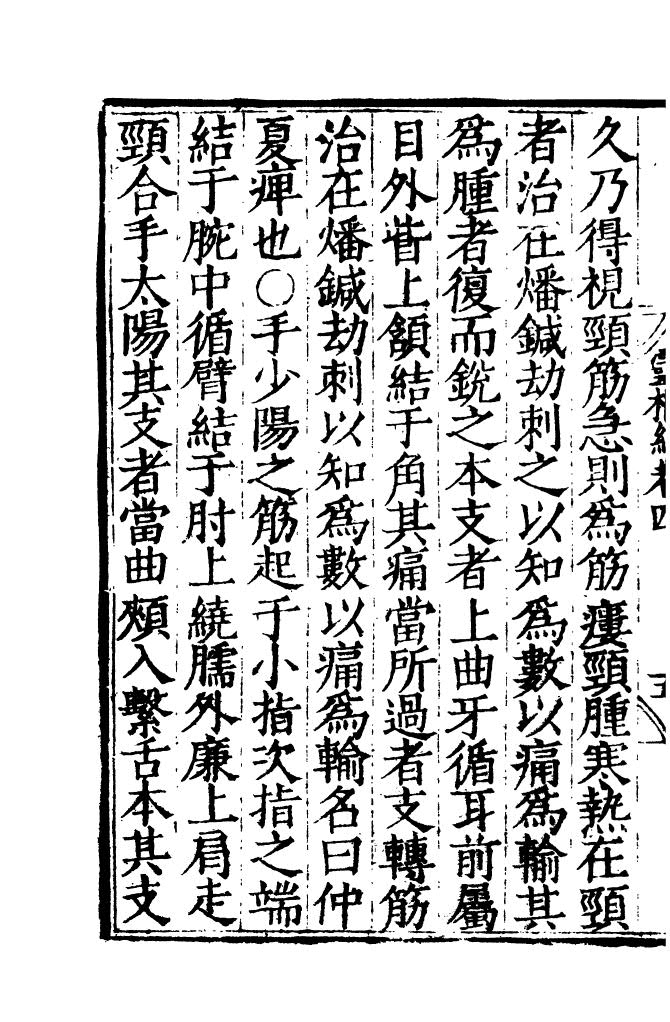 久乃得視頸筋急則爲筋瘻頸腫寒熱在頸
者治在燔鍼劫刺之以知爲數以痛爲輸其
爲腫者復而銳之本支者上曲牙循耳前屬
目外眥上頷結于角其痛當所過者支轉筋
治在燔鍼劫刺以知爲數以痛爲輸名曰仲
夏痺也〇手少陽之筋起于小指次指之端
結于腕中循臂結于肘上繞臑外廉上肩走
頸合手太陽其支者當曲頰入繫舌本其支